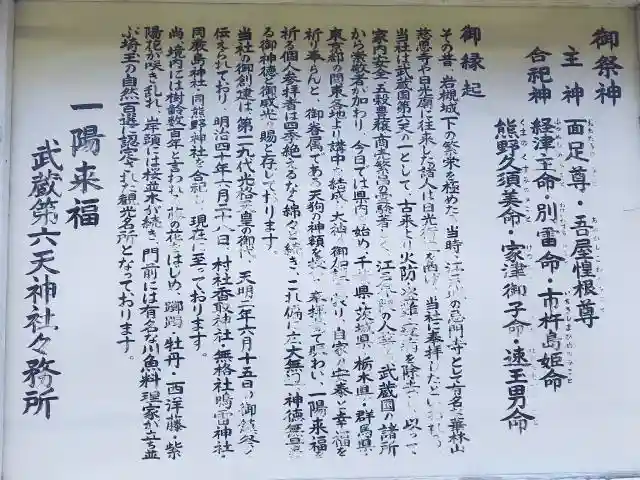 御祭神
主神 面足尊・吾屋惶根尊
合祀神 経津主命・別雷命・市杵島姫命
熊野久須美命・家津御子命・速玉男命
御縁起
その昔、岩槻城下の繁栄を極めた当時、江戸の鬼門寺として有名な華林山
慈恩寺や日光廟に往来した諸人は日光街道を西に、当社に奉拝したといわれ
当社は武蔵国第六天の一として、古来より火防・盗難・疫病を除き、以って
家内安全・五穀豊穣・商売繁昌の霊験著しく、江戸の人々、武蔵国の諸所
から崇敬者が加わり、今日では県内を始め、千葉県・茨城県・栃木県・群馬県
東京都の関東各地より講中を結成、大神の御神徳、自家の安泰と幸福を
祈り奉らんと、御眷属である天狗の神額を奉拝して賑わい、一陽来福を
祈る個人参拝者は四季絶えるなく綿々と続き、これ偏に広大無辺の神徳無
る御神徳と御威光の賜と存じております。
当社の御創建は、第一一九代光格天皇の御代、天明二年六月十五日の御鎮祭と
伝えられており、明治四十年六月二十八日、村社香取神社・無格社鳴雷神社・
同厳島神社・同熊野神社を合祀し、現在に至っております。
尚、境内には樹齢数百年と言われる藤の花をはじめ、躑躅・牡丹・西洋藤・紫
陽花が咲き乱れ、岸頭には桜並木が続き、門前には有名な川魚料理家が立ち並
ぶ埼玉の自然百選に認定された観光名所となっております。
一陽来福
武蔵第六天神社々務所